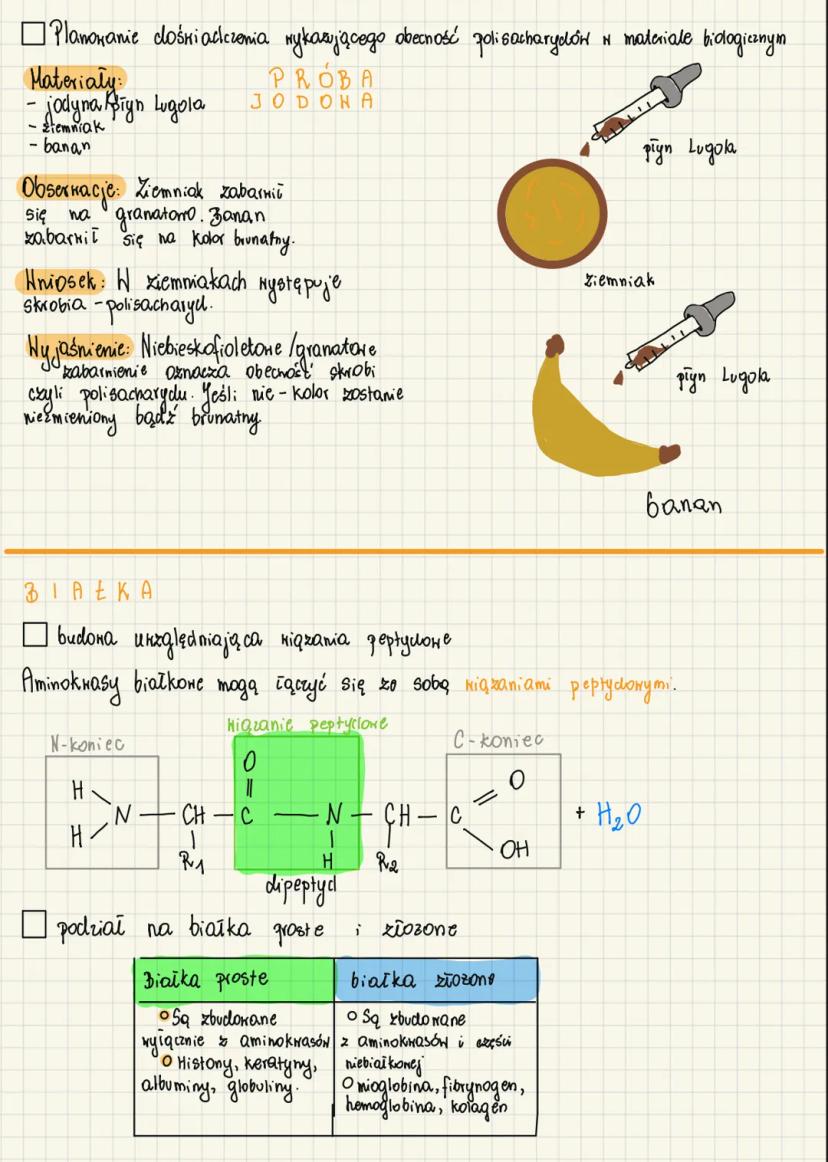 Planowanie doświadczenia wykazującego obecność polisacharydów w materiale biologicznym
Materiały:
PRÓBA
JODOWA
- jodyna/płyn Lugola
- ziemniak
- banan
płyn Lugola
Obserwacje: Ziemniak zabarwił
się na granatowo. Banan
zabarwił się na kolor brunatny.
ziemniak
Wniosek: W ziemniakach występuje
skrobia - polisacharyd.
Wyjaśnienie: Niebieskofioletowe/granatowe
zabarwienie oznacza obecność skrobi
czyli polisacharydu. Jeśli nie - kolor zostanie
niezmieniony bądź brunatny
płyn Lugola
banan
BIAŁKA
budowa uwzględniająca wiązania peptydowe
Aminokwasy białkowe mogą łączyć się ze sobą wiązaniami peptydowymi.
wiązanie peptydowe
N-koniec
C-koniec
O
O
H
N — CH — C — N — CH — C
+ H₂O
H
R₁
H
R₂
OH
dipeptyd
podział na białka proste i złożone
Białka proste
białka złożone
Są zbudowane
wyłącznie z aminokwasów
Histony, keratyny,
albuminy, globuliny.
Są zbudowane
z aminokwasów i części
niebiałkowej
mioglobina, fibrynogen,
hemoglobina, kolagen